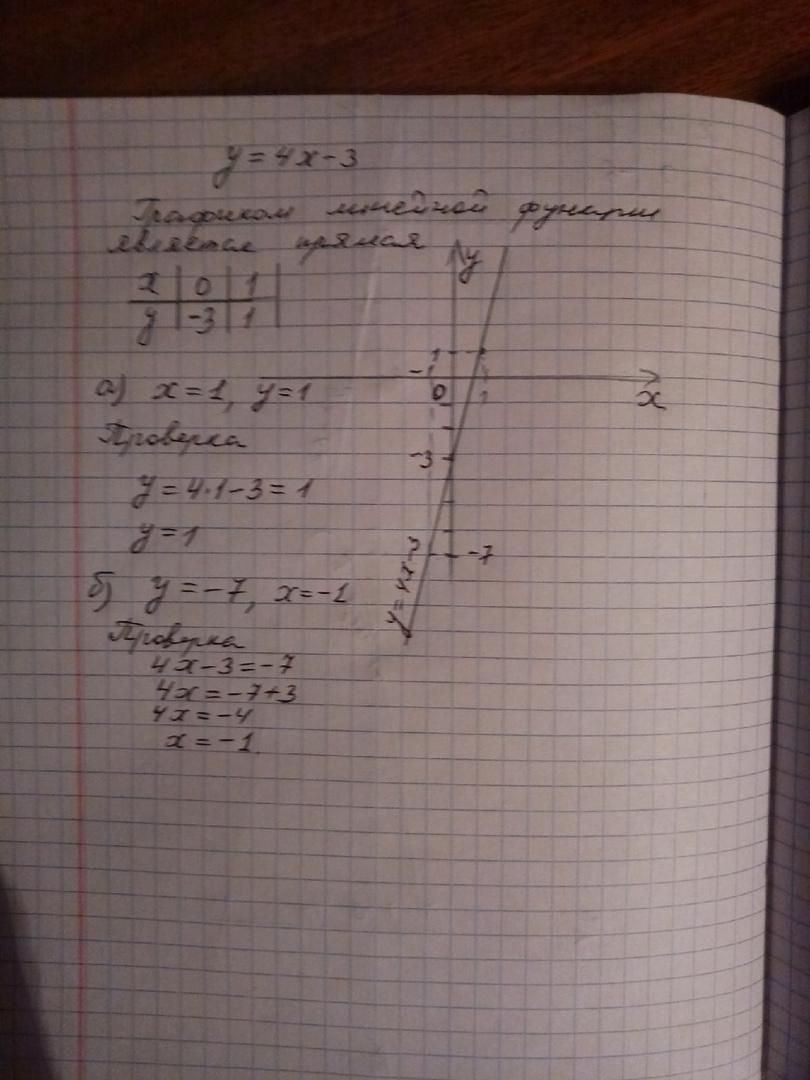 y = 4x - 3
Графиком линейной функции
является прямая
x | 0 | 1
y | -3 | 1
а) x = 1, y = 1
Проверка
y = 4·1 - 3 = 1
y = 1
б) y = -7, x = -1
Проверка
4x - 3 = -7
4x = -7 + 3
4x = -4
x = -1.
y
1
-1
0
1
x
-3
-7
y = 4x - 3